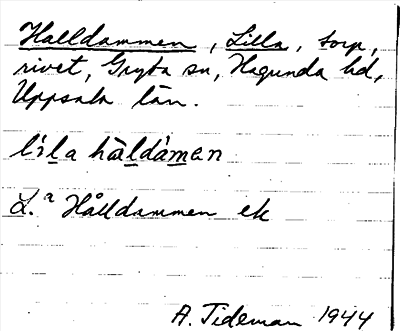 Halldammen, Lilla, torp,
rivet, Gryta sn, Hagunda hd,
Uppsala län.
lila håldámen
L.ª Hålldammen ek
A. Tideman 1944